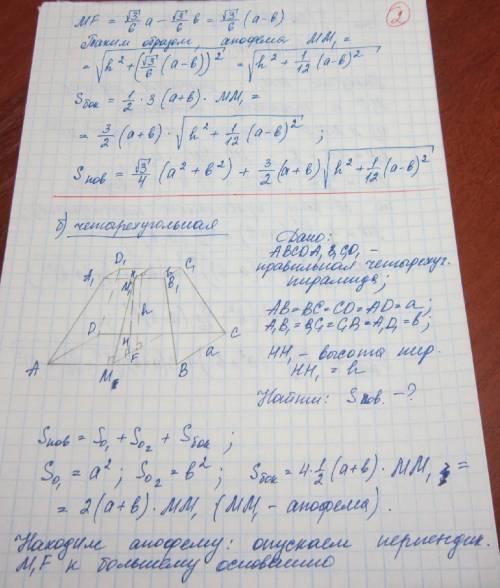 2
MF = √3/6 a − √3/6 b = √3/6 (a−b).
Таким образом, апофема MM₁ =
= √(h² + (√3/6 (a−b))²) = √(h² + 1/12 (a−b)²)
Sбок = 1/2 · 3(a+b) · MM₁ =
= 3/2 (a+b) · √(h² + 1/12 (a−b)²) ;
Sпов = √3/4 (a² + b²) + 3/2 (a+b) √(h² + 1/12 (a−b)²)
б) четырехугольная
Дано:
ABCDA₁B₁C₁D₁ –
правильная четырехуг.
пирамида;
AB=BC=CD=AD=a;
A₁B₁=B₁C₁=C₁D₁=A₁D₁=b;
HH₁ – высота пир.
HH₁ = h
Найти: Sпов. – ?
D₁ C₁
A₁ M₁ H₁ b B₁
h
D H C
A M F B a
Sпов = So₁ + So₂ + Sбок ;
So₁ = a² ; So₂ = b² ; Sбок = 4·1/2 (a+b) · MM₁ =
= 2(a+b) · MM₁ (MM₁ – апофема).
Находим апофему: опускаем перпендик.
M₁F к большему основанию